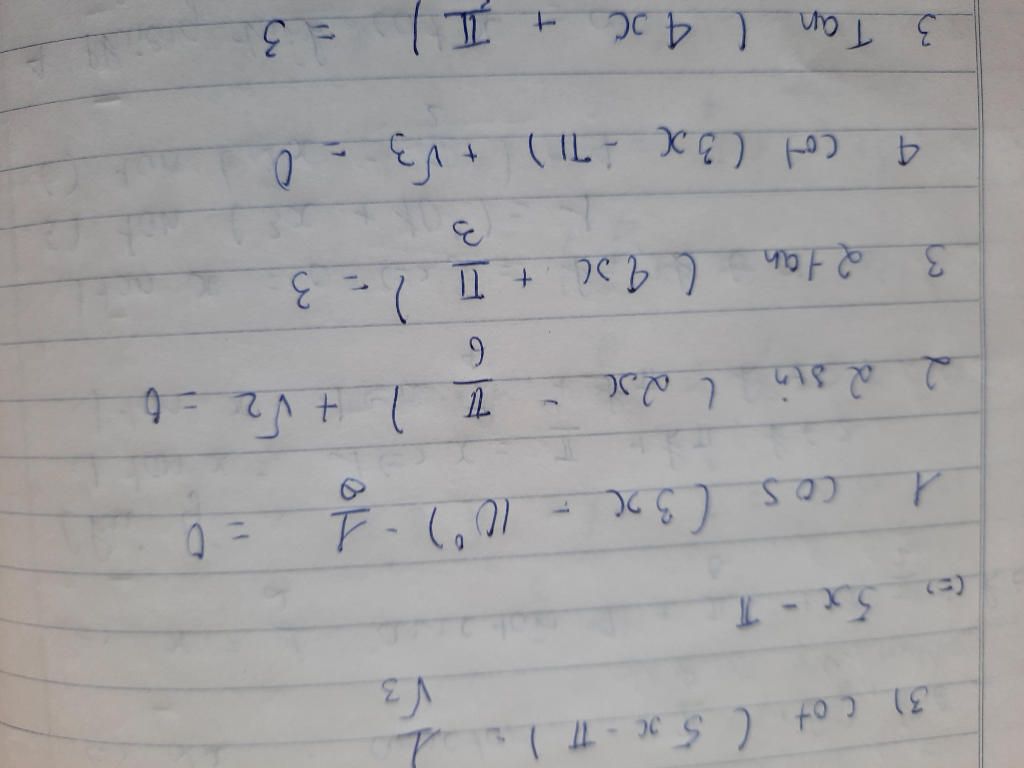 3) cot (5x - π) = 1/√3
(=) 5x - π
1 cos (3x - 10°) - 1/2 = 0
2 2sin (2x - π/6) + √2 = 0
3 2tan (4x + π/3) = 3
4 cot (3x - π) + √3 = 0
3 Tan (4x + π
) = 3